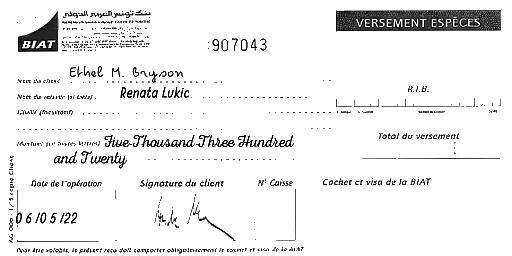 بنك تونس العربي الدولي
BIAT
907043
VERSEMENT ESPÈCES
Nom du client Ethel M. Bryson
Nom du remettant (si tiers) Renata Lukic
R.I.B.
Libellé (facultatif)
Montant (en toutes lettres) Five Thousand Three Hundred
and Twenty
Total du versement
Date de l'opération
Signature du client
N° Caisse
Cachet et visa de la BIAT
06/05/22
Pour être valable, le présent reçu doit comporter obligatoirement le cachet et visa de la BIAT